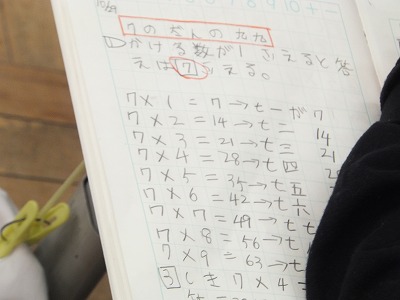 10/29
7のだんの九九
①かける数が1ふえると答
えは7ふえる。
7×1=7→七一が7
7×2=14→七二 14
7×3=21→七三 21
7×4=28→七四 28
7×5=35→七五
7×6=42→七六
7×7=49→七七
7×8=56→七
7×9=63→七
③しき 7×4=